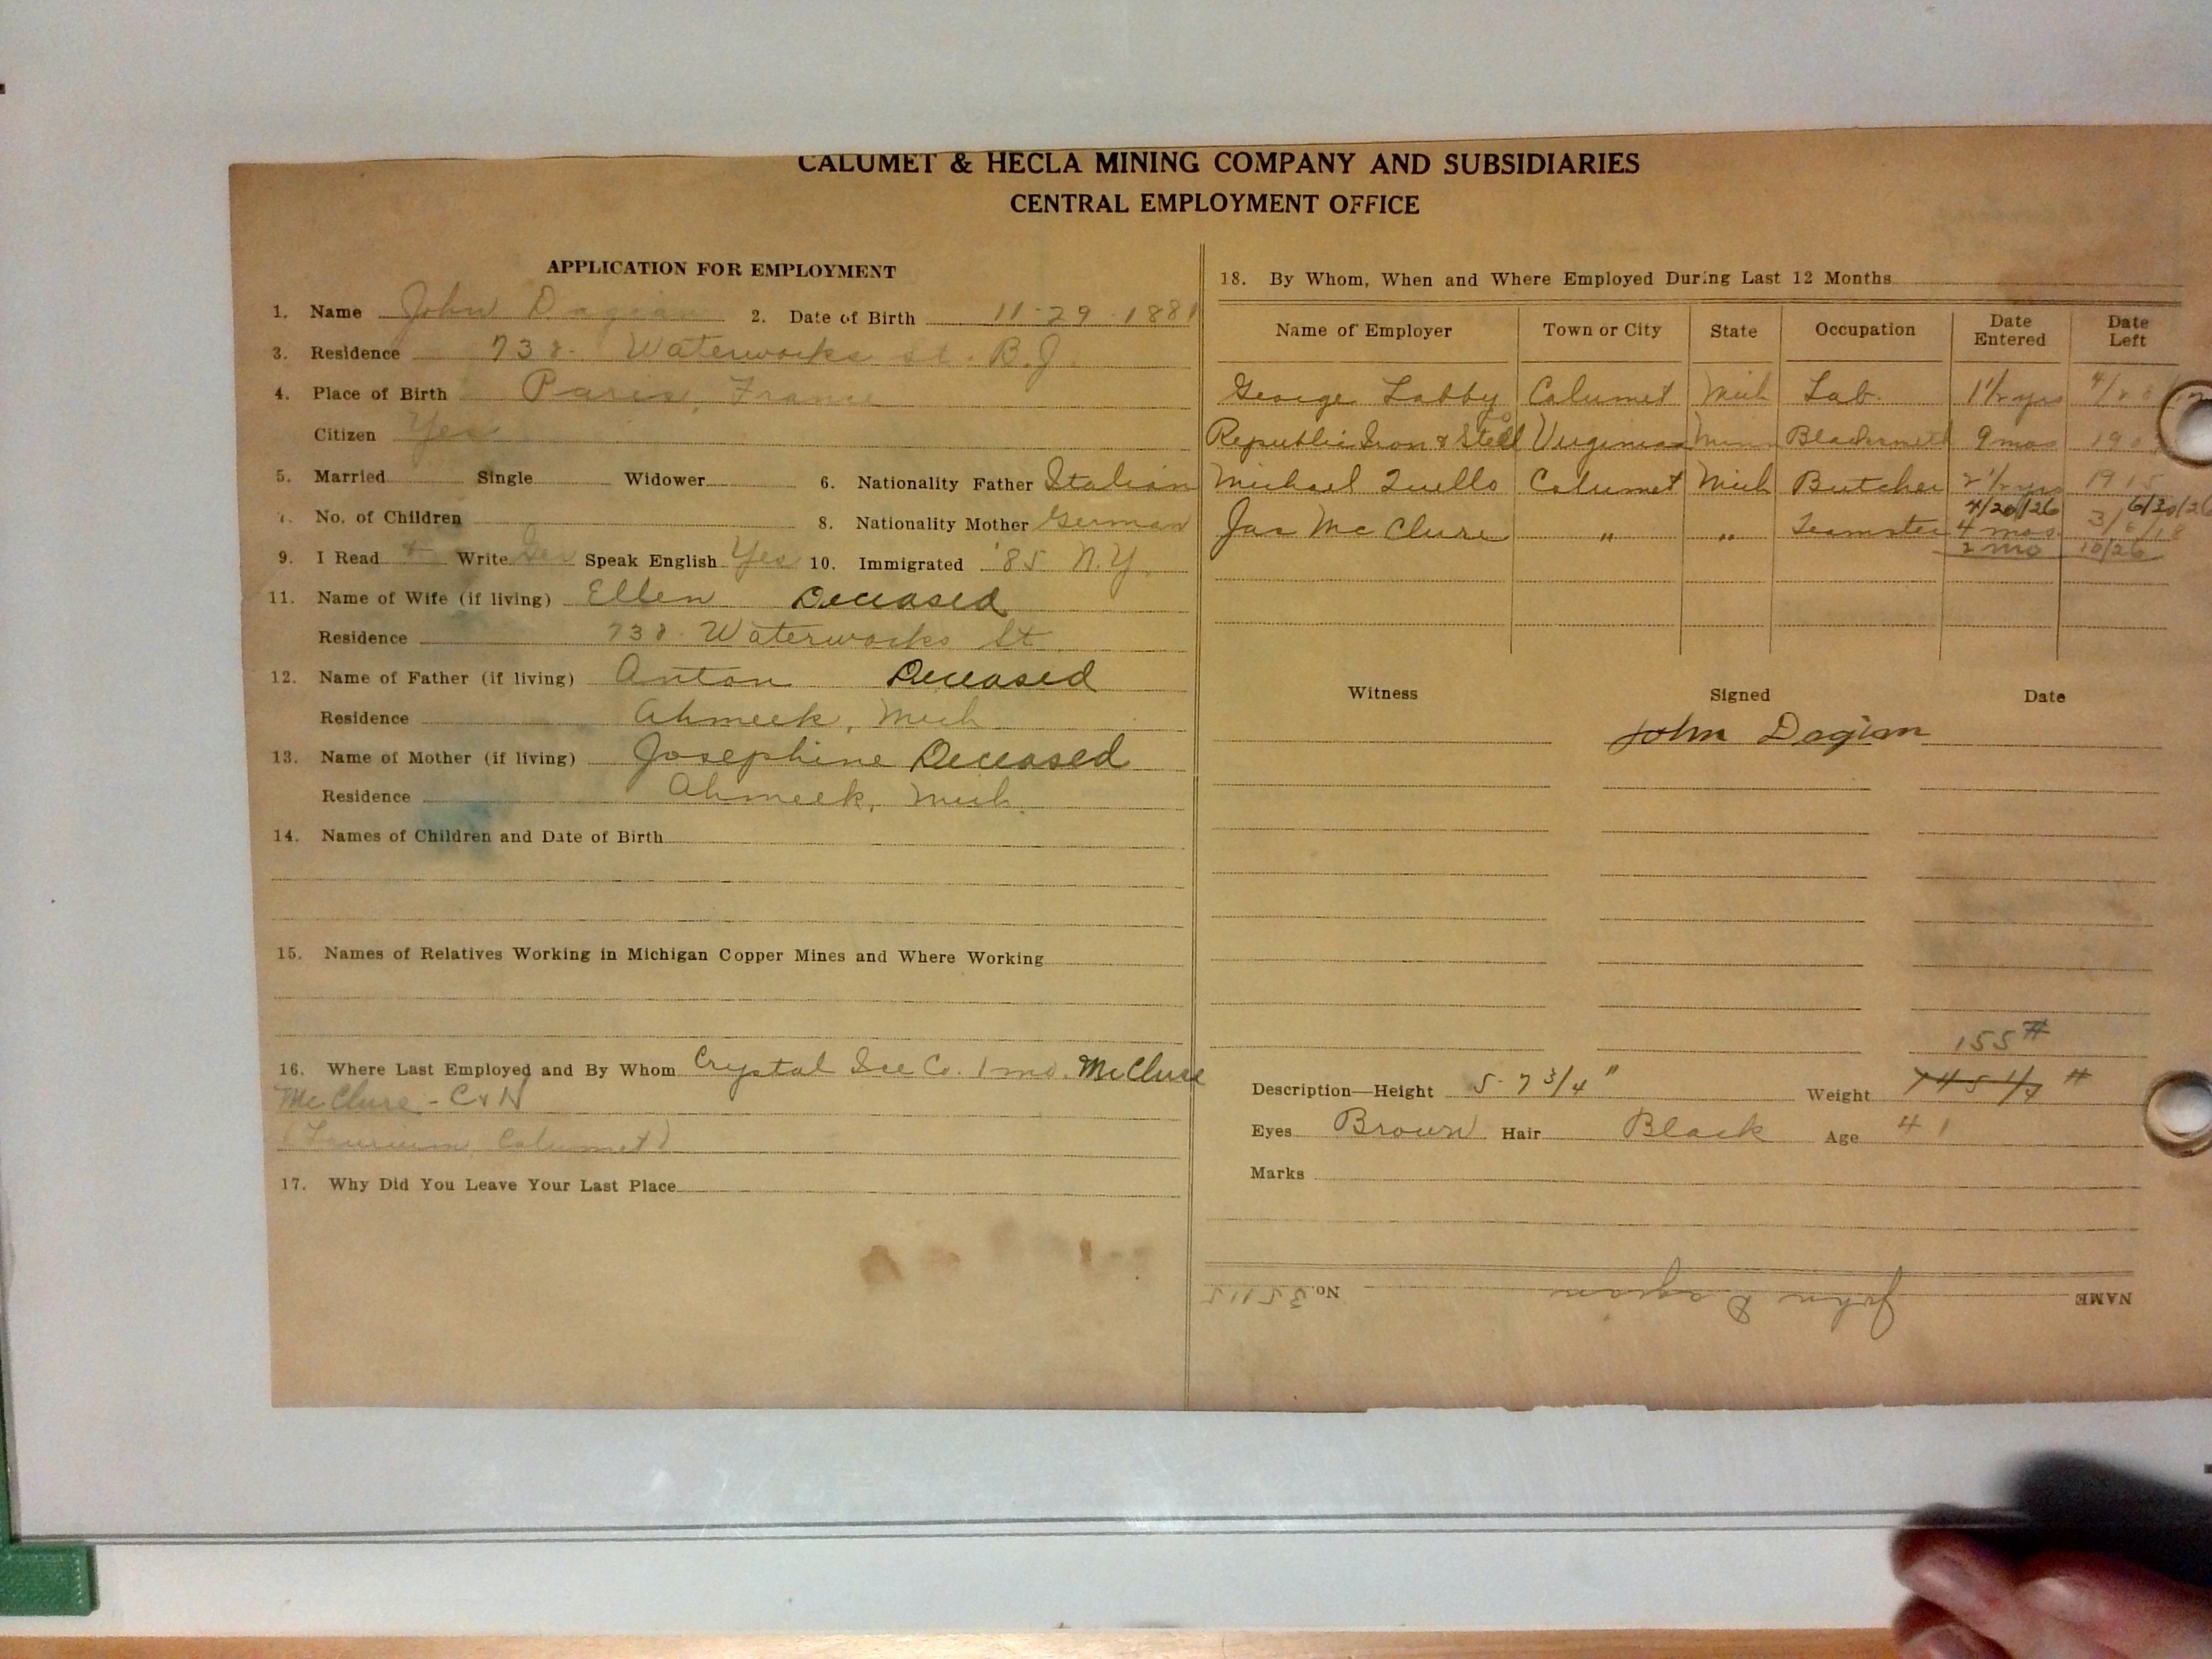 CALUMET & HECLA MINING COMPANY AND SUBSIDIARIES
CENTRAL EMPLOYMENT OFFICE
APPLICATION FOR EMPLOYMENT
1. Name John Dagian 2. Date of Birth 11-29-1881
3. Residence 738 Waterworks st. B.J.
4. Place of Birth Paris, France
Citizen Yes
5. Married Single Widower 6. Nationality Father Italian
7. No. of Children 8. Nationality Mother German
9. I Read Write Speak English Yes 10. Immigrated '85 N.Y.
11. Name of Wife (if living) Ellen Deceased
Residence 738 Waterworks St
12. Name of Father (if living) Anton Deceased
Residence Ahmeek, Mich
13. Name of Mother (if living) Josephine Deceased
Residence Ahmeek, Mich.
14. Names of Children and Date of Birth
15. Names of Relatives Working in Michigan Copper Mines and Where Working
16. Where Last Employed and By Whom Crystal Ice Co. 1 mo. McClure
McClure - C & H
(Laurium, Calumet)
17. Why Did You Leave Your Last Place
18. By Whom, When and Where Employed During Last 12 Months
Name of Employer Town or City State Occupation Date Entered Date Left
George Labby Calumet Mich Lab. 1 1/2 yrs
Republic Iron & Steel Virginia Minn Blacksmith 9 mos
Michael Quello Calumet Mich Butcher 2 1/2 yrs 1915
4/20/26 6/30/26
Jas McClure " " Teamster 4 mos 3/6/18
2 mo 10/26
Witness Signed Date
John Dagian
155#
Description—Height 5-7 3/4" Weight 145 1/4 #
Eyes Brown Hair Black Age 41
Marks
NAME John Dagian No. 35115